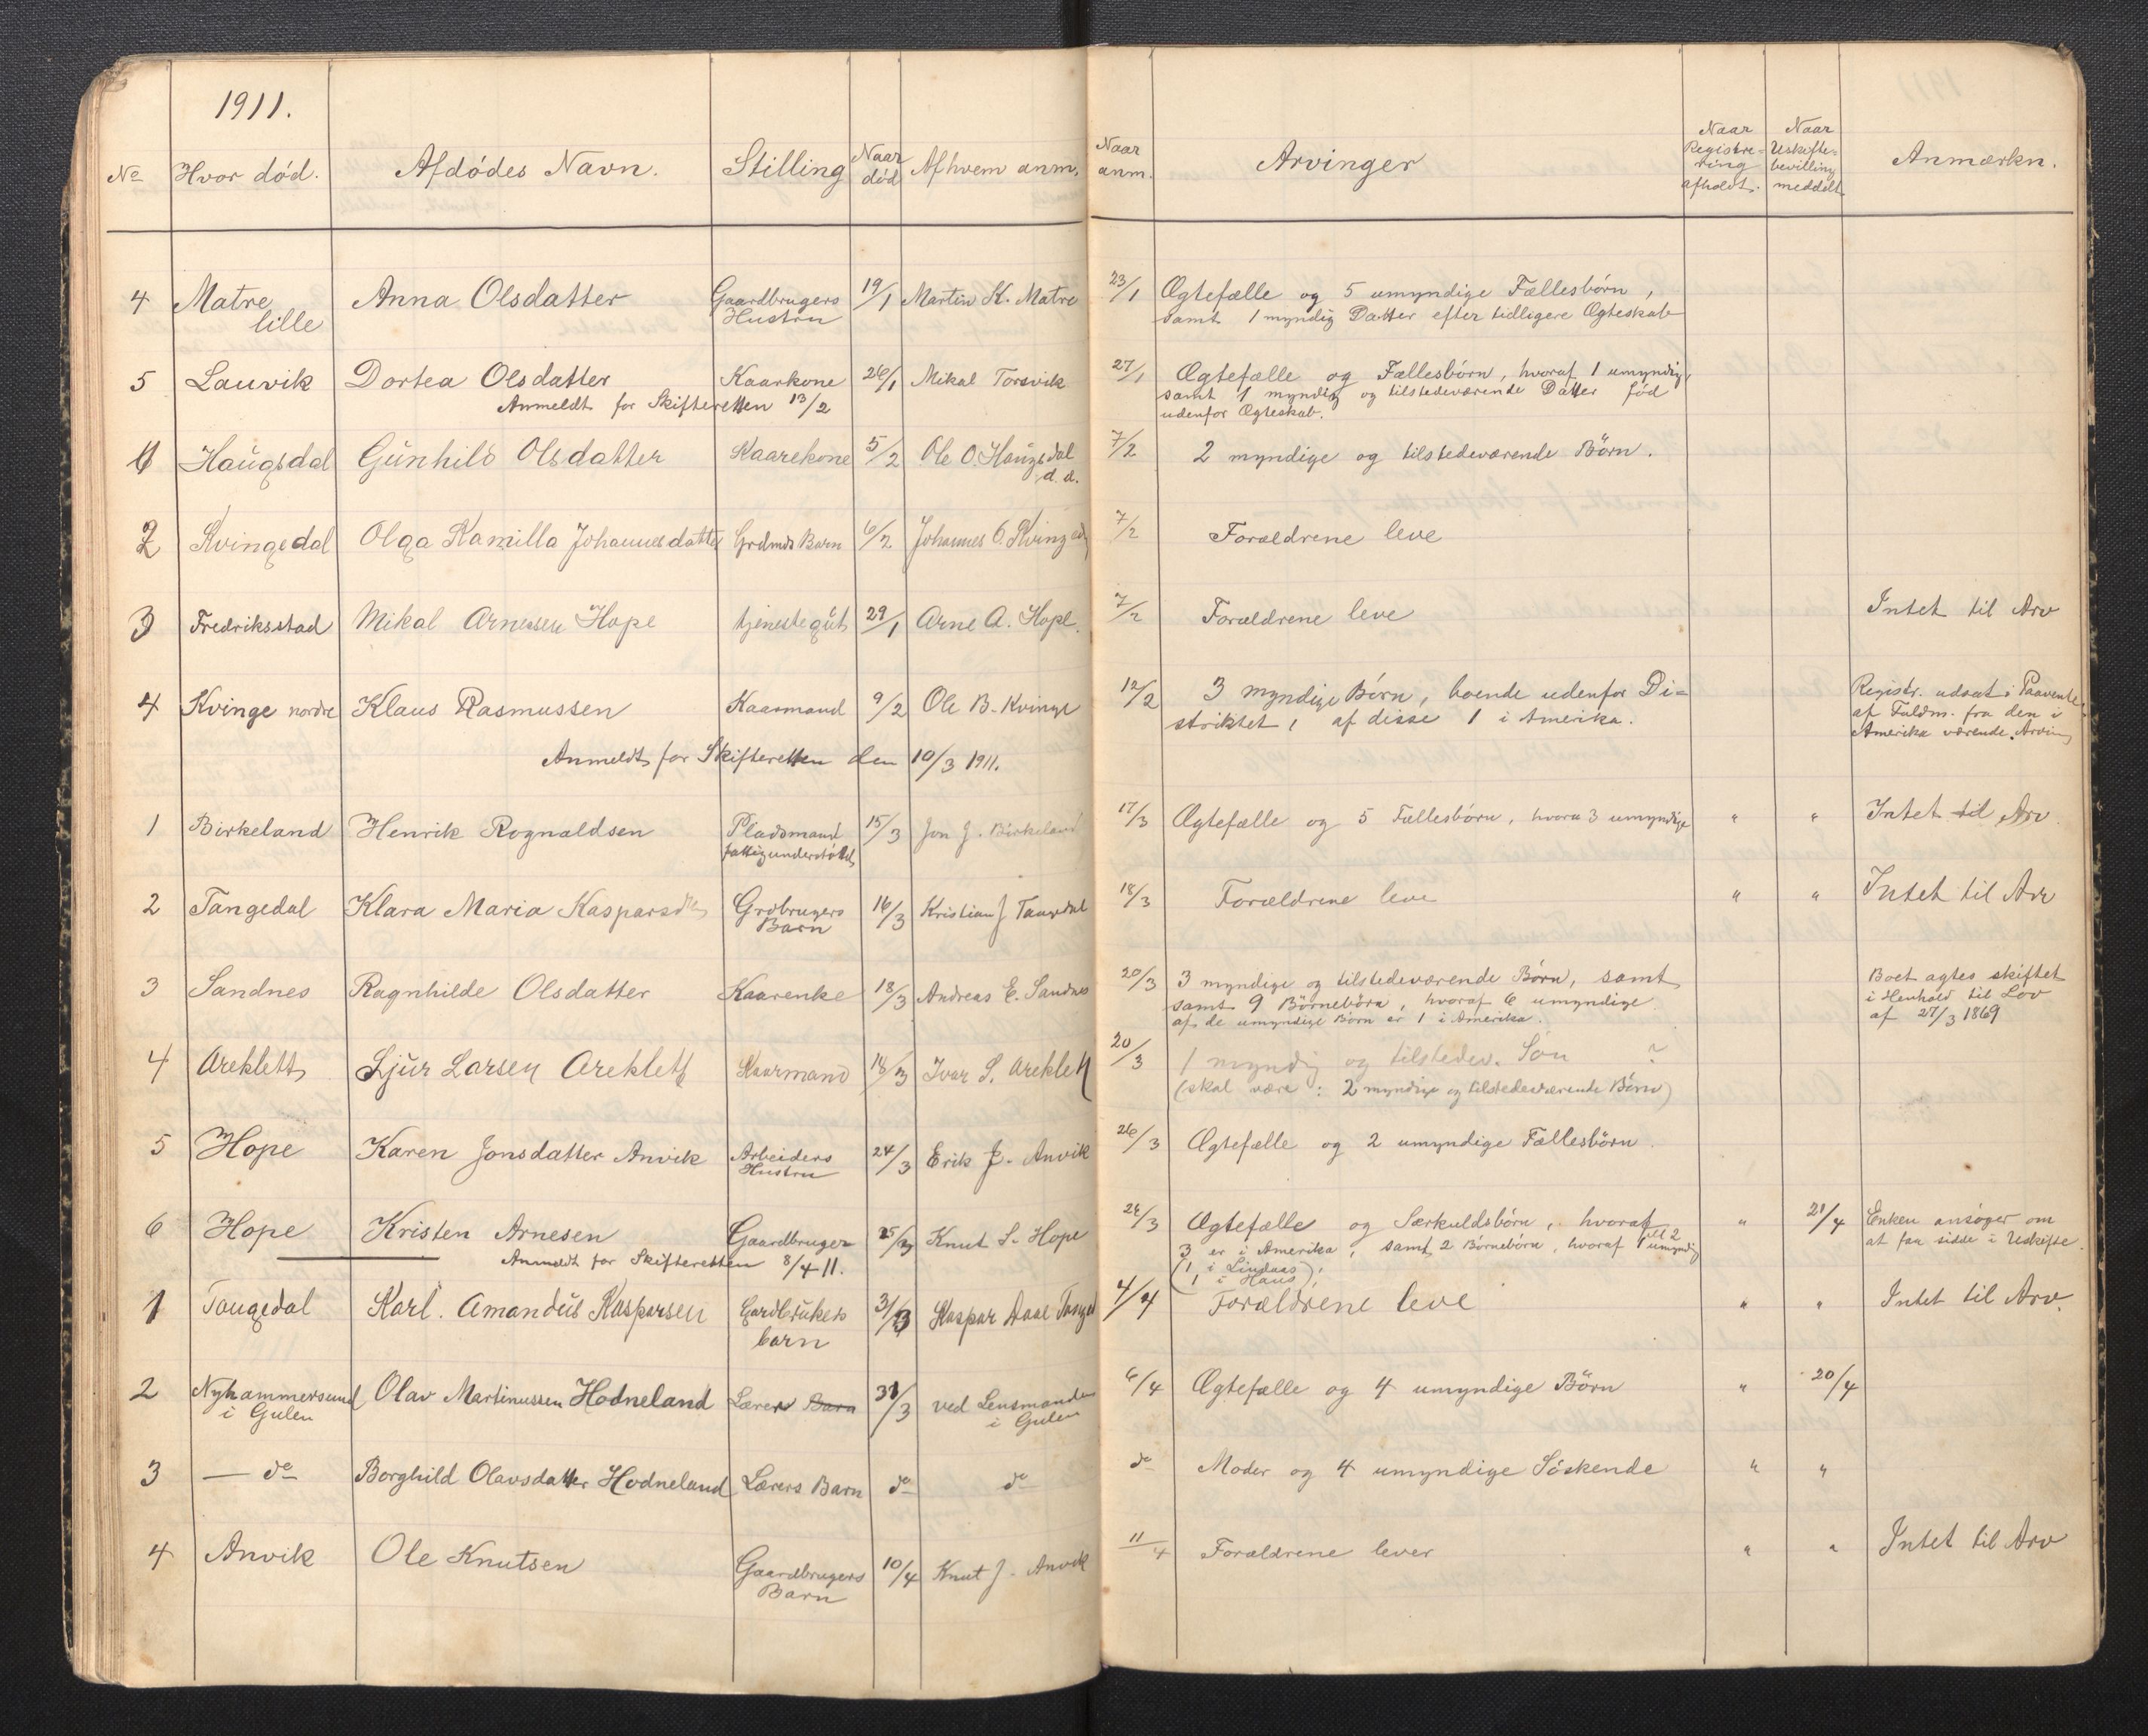 1911.
No Hvor död. Afdödes Navn. Stilling Naar död Af hvem anm. Naar anm. Arvinger Naar Registrering afholdt. Naar Uskiftebevilling meddelt Anmærkn.
4 Matre Anna Olsdatter Gaardbrugers 19/1 Martin K. Matre 23/1 Ægtefælle og 5 umyndige Fællesbörn,
lille Hustru samt 1 myndig Datter efter tidligere Ægteskab
5 Lauvik Dortea Olsdatter Kaarkone 26/1 Mikal Torsvik 27/1 Ægtefælle og Fællesbörn, hvoraf 1 umyndig,
Anmeldt for Skifteretten 13/2 samt 1 myndig og tilstedeværende Datter född
udenfor Ægteskab.
1 Haugsdal Gunhild Olsdatter Kaarekone 5/2 Ole O. Haugsdal 7/2 2 myndige og tilstedeværende Börn.
d. d.
2 Kvingedal Olga Kamilla Johannesdatter Grdmds Barn 6/2 Johannes O. Kvinged 7/2 Forældrene leve
3 Fredriksstad Mikal Arnesen Hope tjenestegut 29/1 Arne A. Hope. 7/2 Forældrene leve Intet til Arv
4 Kvinge nordre Klaus Rasmussen Kaarmand 9/2 Ole B. Kvinge 12/2 3 myndige Börn, boende udenfor Di- Registr. udsat i Paavente
striktet, af disse 1 i Amerika. af Fuldm. fra den i
Amerika værende Arving
Anmeldt for Skifteretten den 10/3 1911.
1 Birkeland Henrik Rognaldsen Pladsmand 15/3 Jon J. Birkeland 17/3 Ægtefælle og 5 Fællesbörn, hvoraf 3 umyndige " " Intet til Arv
fattigunderstöttet
2 Tangedal Klara Maria Kasparsdtr Grdbrugers 16/3 Kristian J Tangedal 18/3 Forældrene leve " " Intet til Arv
Barn
3 Sandnes Ragnhilde Olsdatter Kaarenke 18/3 Andreas E. Sandnes 20/3 3 myndige og tilstedeværende Börn, samt Boet agtes skiftet
samt 9 Börnebörn, hvoraf 6 umyndige i Henhold til Lov
af de umyndige Börn er 1 i Amerika. af 27/3 1869
4 Areklett Sjur Larsen Areklett Kaarmand 18/3 Ivar S. Areklett 20/3 1 myndig og tilstedev. Sön ?
(skal være: 2 myndige og tilstedeværende Börn)
5 Hope Karen Jonsdatter Anvik Arbeiders 24/3 Erik J. Anvik 26/3 Ægtefælle og 2 umyndige Fællesbörn.
Hustru
6 Hope Kristen Arnesen Gaardbruger 25/3 Knut S. Hope 26/3 Ægtefælle og Særkuldsbörn, hvoraf " 21/4 Enken ansöger om
Anmeldt for Skifteretten 8/4 11. 3 er i Amerika, samt 2 Börnebörn, hvoraf 1 umyndig at faa sidde i Uskifte.
(1 i Lindaas),
(1 i Haus),
1 Tangedal Karl. Amandus Kasparsen Gardbrukers 31/3 Kaspar Aase Tanged 4/4 Forældrene leve " " Intet til Arv.
barn
2 Nyhammersund Olav Martinussen Hodneland Lærer Barn 31/3 ved Lensmanden 6/4 Ægtefælle og 4 umyndige Börn " 20/4
i Gulen i Gulen
3 — do Borghild Olavsdatter Hodneland Lærers Barn do do do Moder og 4 umyndige Söskende " "
4 Anvik Ole Knutsen Gaardbrugers 10/4 Knut J. Anvik 11/4 Forældrene lever " " Intet til Arv
Barn